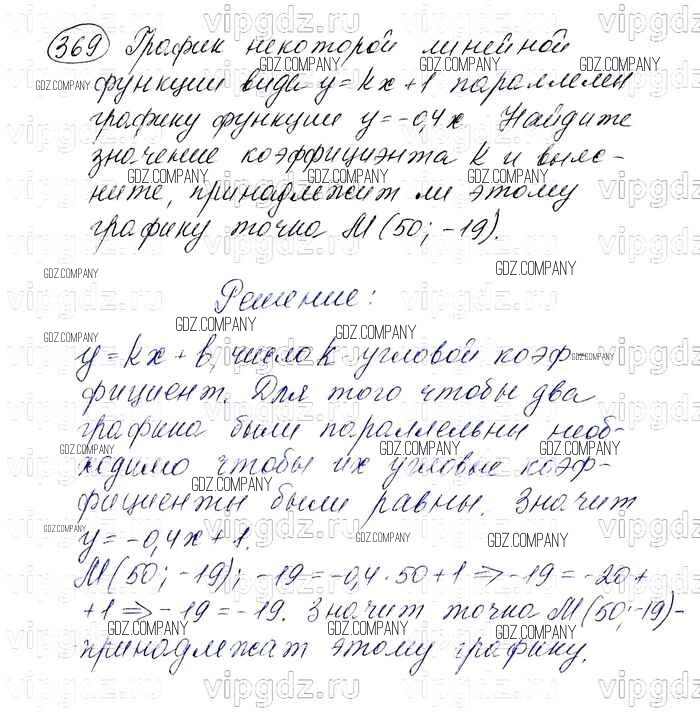 369 График некоторой линейной
функции вида y=kx+1 параллелен
графику функции y=-0,4x Найдите
значение коэффициента k и выяс-
ните, принадлежит ли этому
графику точка M(50; -19).
Решение:
y=kx+b, число k угловой коэф-
фициент. Для того чтобы два
графика были параллельны необ-
ходимо чтобы их угловые коэф-
фициенты были равны. Значит
y=-0,4x+1.
M(50; -19); -19=-0,4·50+1⇒-19=-20+
+1⇒-19=-19. Значит точка M(50;-19)-
принадлежат этому графику.